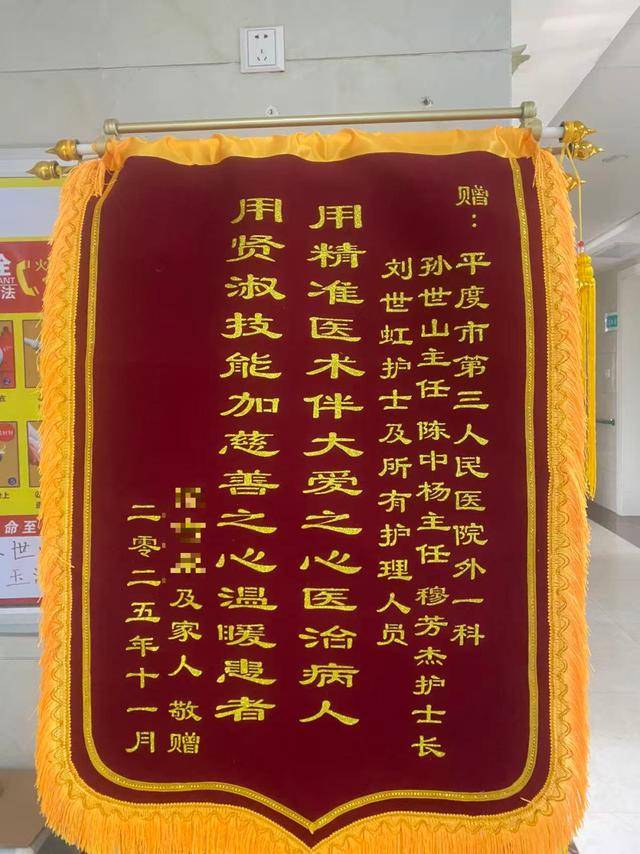 赠：
平度市第三人民医院外一科
孙世山主任 陈中杨主任 穆芳杰护士长
刘世虹护士及所有护理人员
用精准医术伴大爱之心医治病人
用贤淑技能加慈善之心温暖患者
及家人 敬赠
二零二五年十一月
全
火
法
命至
世